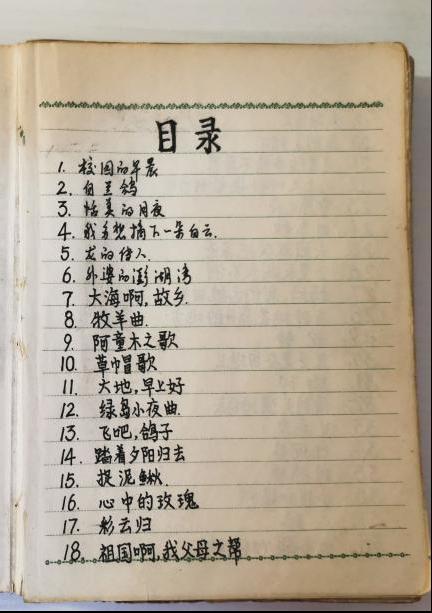 目录
1. 校园的早晨
2. 白兰鸽
3. 恬美的月夜
4. 我多想摘下一朵白云.
5. 龙的传人.
6. 外婆的澎湖湾
7. 大海啊,故乡.
8. 牧羊曲.
9. 阿童木之歌
10. 草帽歌
11. 大地,早上好
12. 绿岛小夜曲.
13. 飞吧,鸽子
14. 踏着夕阳归去
15. 捉泥鳅.
16. 心中的玫瑰
17. 彩云归
18. 祖国啊,我父母之帮